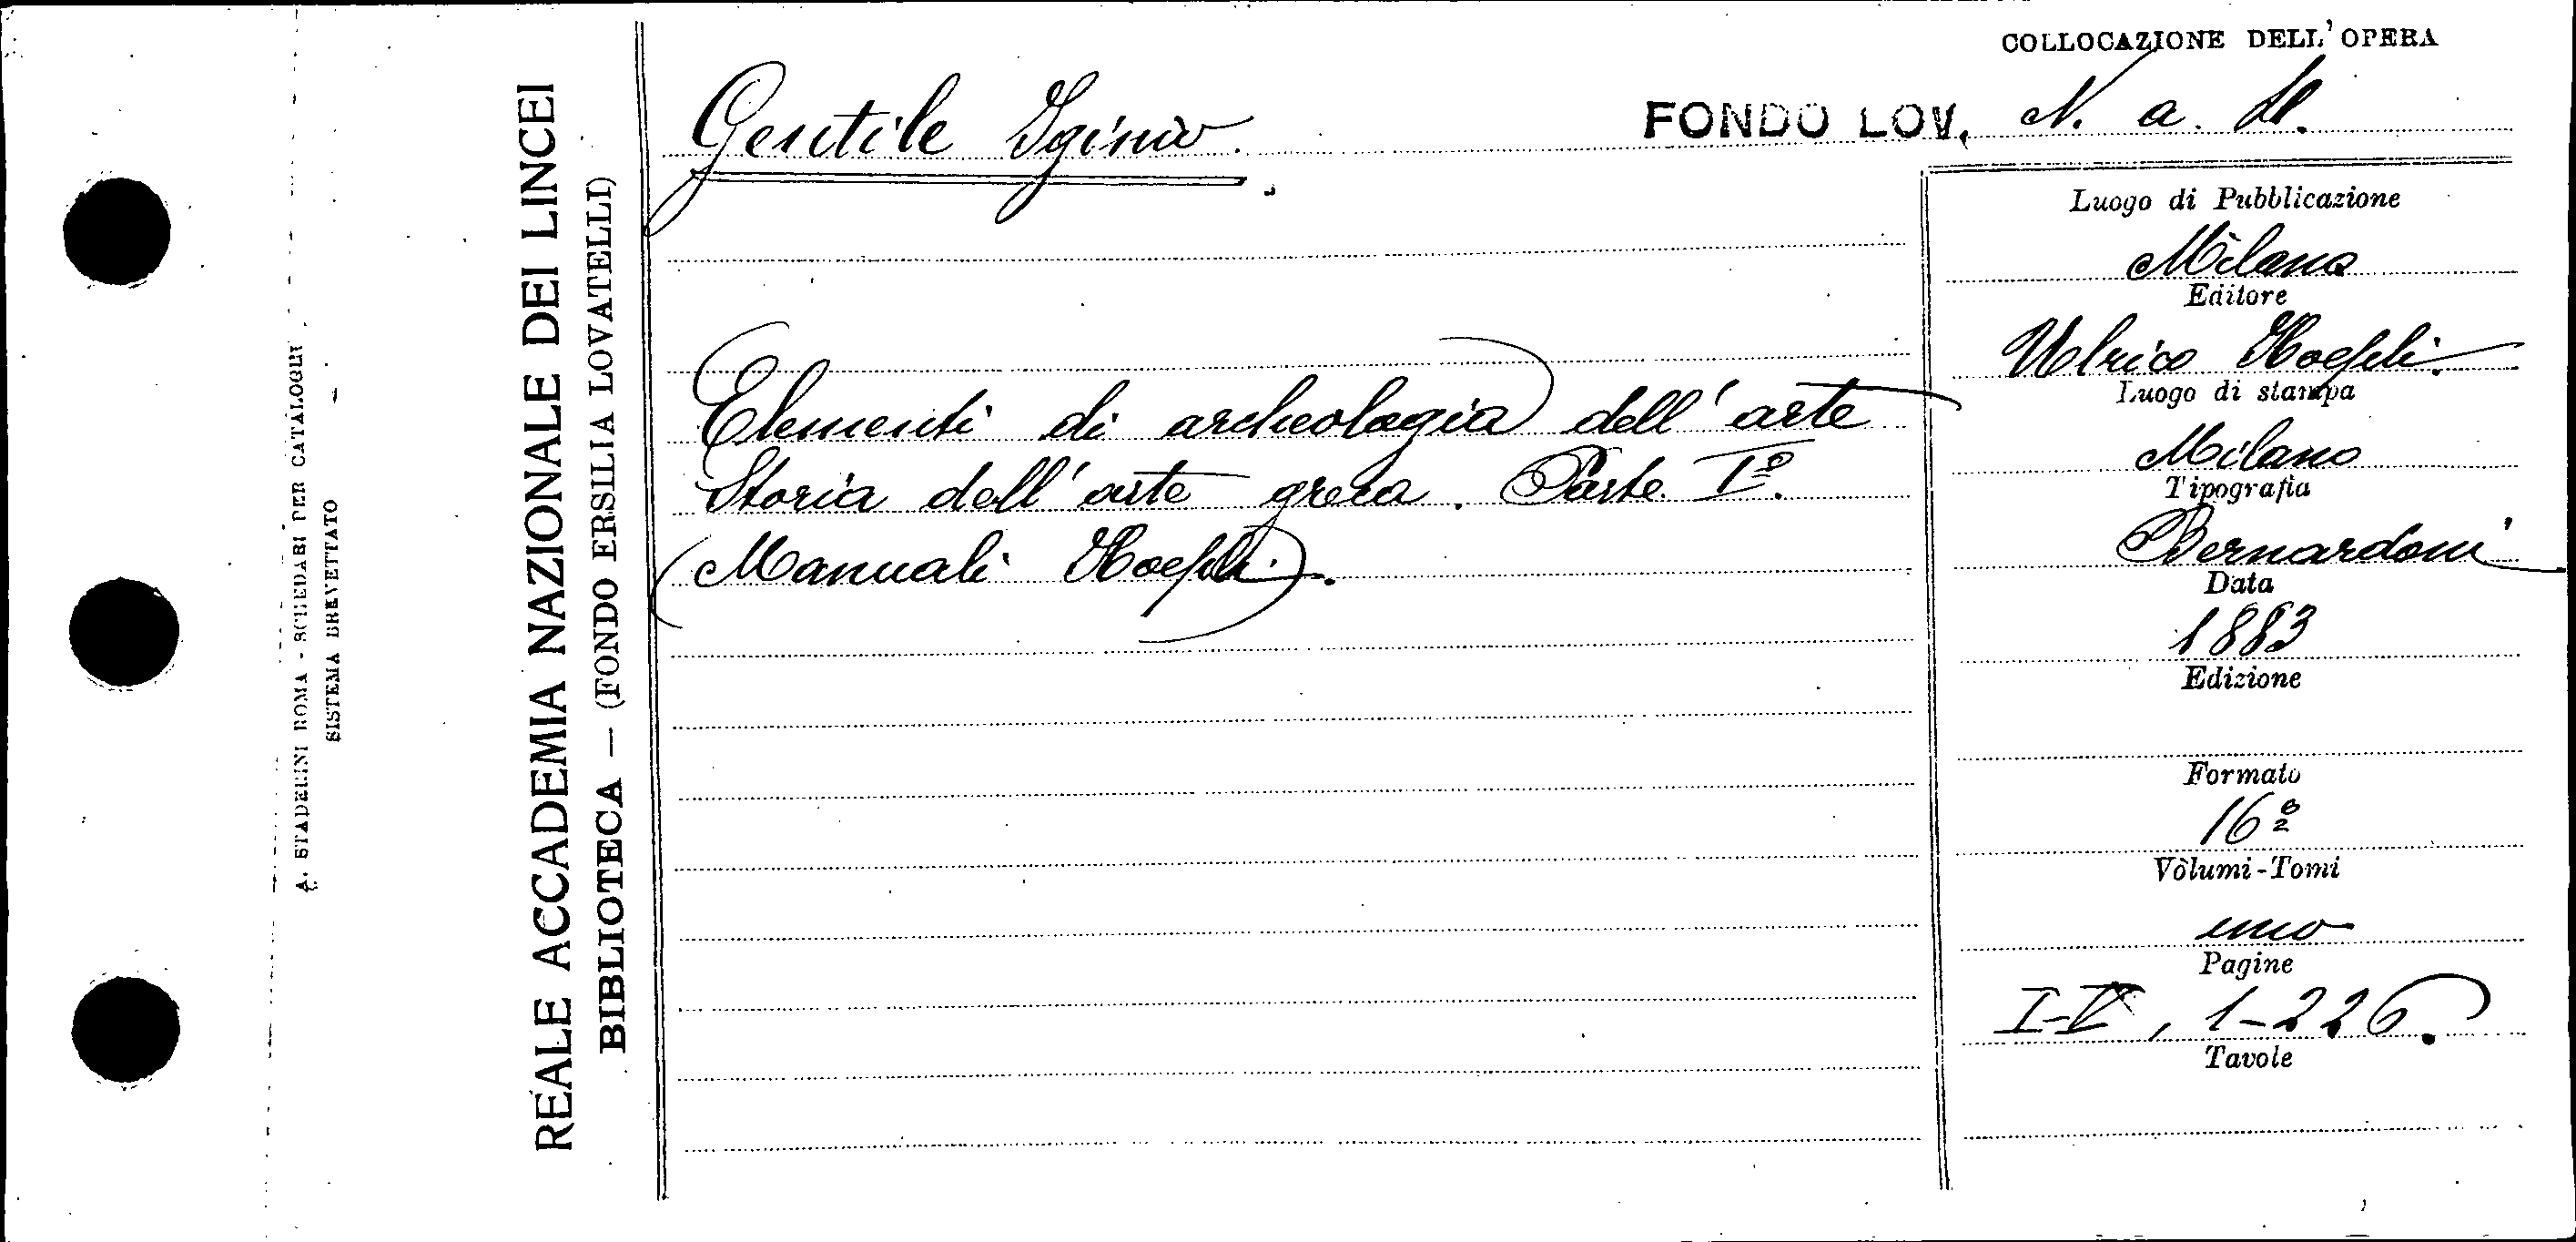 COLLOCAZIONE DELL'OPERA
Gentile Iginio.
FONDO LOV. N. a.
Elementi di archeologia dell'arte
Storia dell'arte greca. Parte Iª.
(Manuali Hoepli).
Luogo di Pubblicazione
Milano
Editore
Ulrico Hoepli.
Luogo di stampa
Milano
Tipografia
Bernardoni
Data
1883
Edizione
Formato
16º
Volumi-Tomi
uno
Pagine
I-V, 1-226.
Tavole
REALE ACCADEMIA NAZIONALE DEI LINCEI
BIBLIOTECA — (FONDO ERSILIA LOVATELLI)
A. STADERINI ROMA - SCHEDARI PER CATALOGHI
SISTEMA BREVETTATO